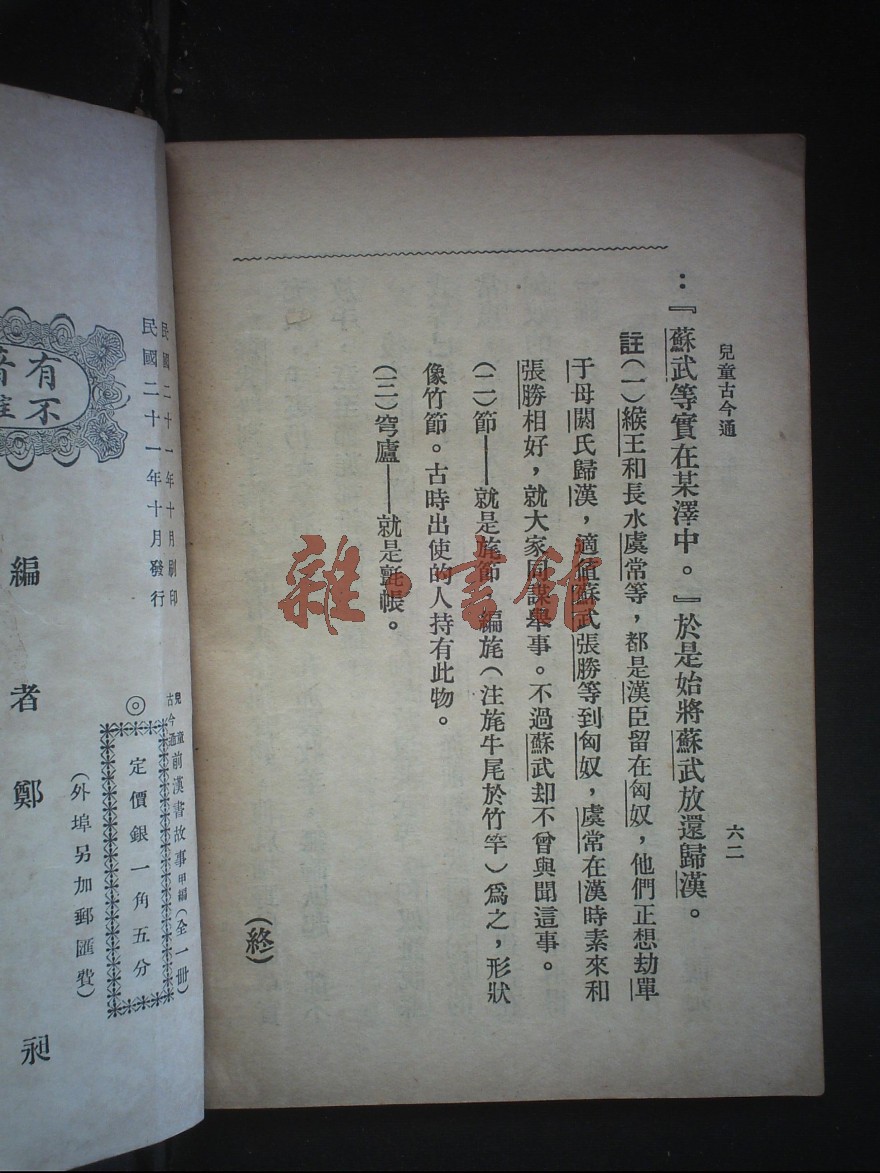 兒童古今通
六二
：『蘇武等實在某澤中。』於是始將蘇武放還歸漢。
註(一)緱王和長水虞常等，都是漢臣留在匈奴，他們正想劫單
于母閼氏歸漢，適值蘇武張勝等到匈奴，虞常在漢時素來和
張勝相好，就大家同謀舉事。不過蘇武却不曾與聞這事。
(二)節——就是旄節，編旄(注旄牛尾於竹竿)爲之，形狀
像竹節。古時出使的人持有此物。
(三)穹廬——就是氈帳。
(終)
雜·書館
民國二十一年十月刷印
民國二十一年十月發行
兒童古今通前漢書故事甲編(全一册)
◎定價銀一角五分
(外埠另加郵匯費)
有不
著
編者鄭昶